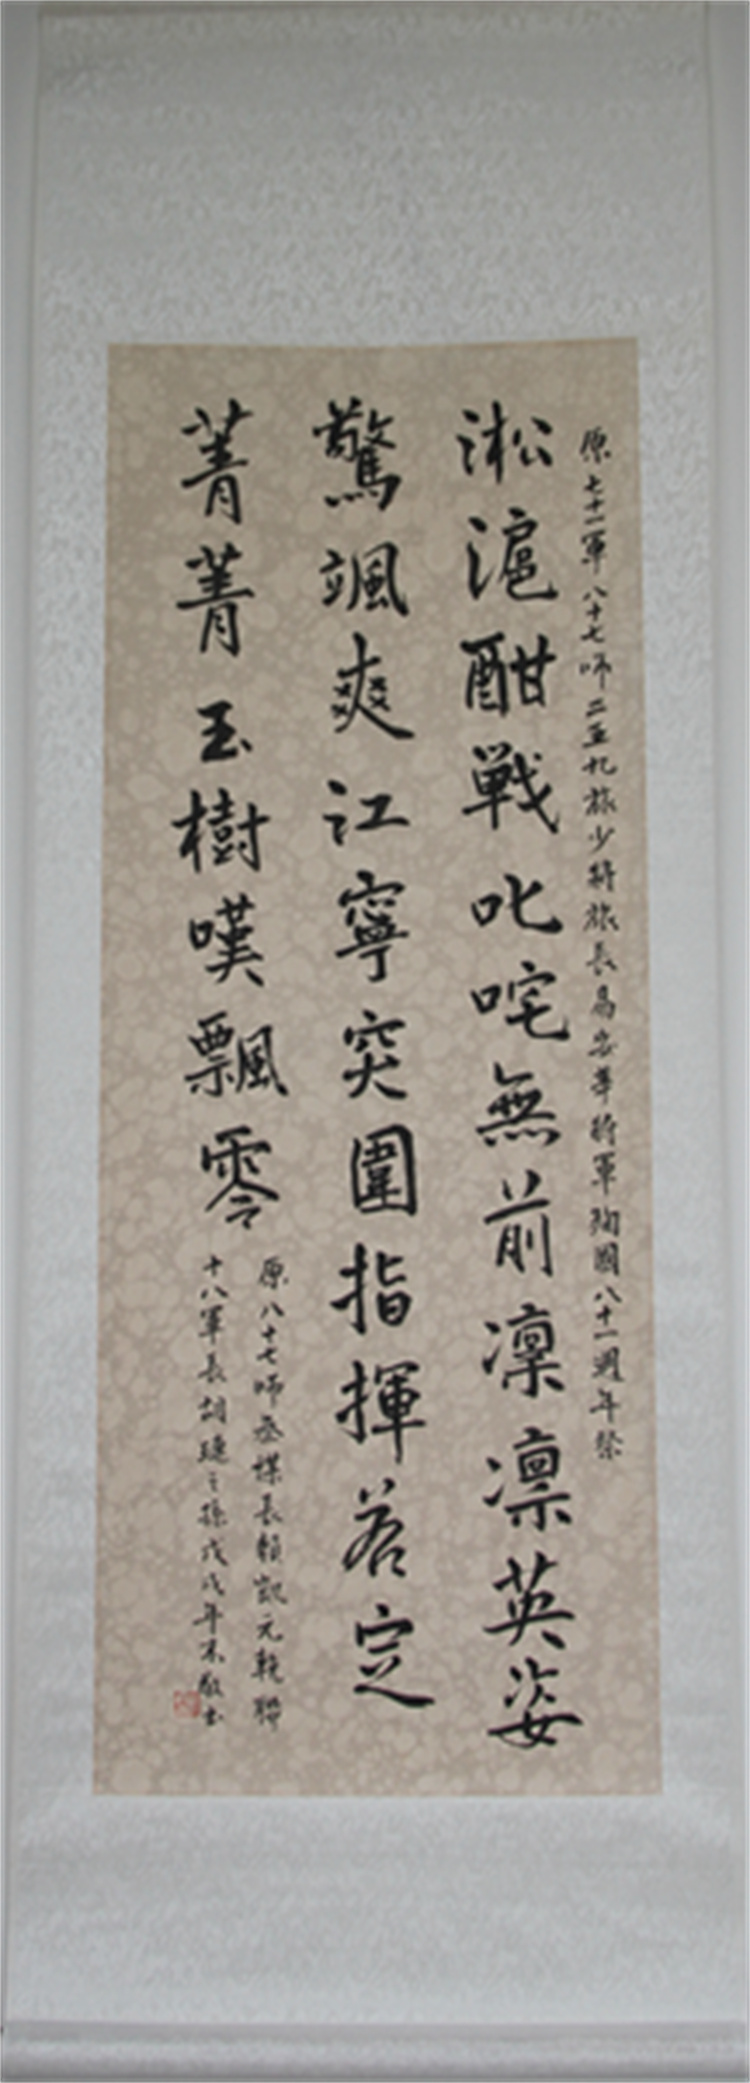 原七十一軍八十七师二五九旅少將旅長易安華將軍殉國八十一週年祭
淞滬酣戰叱咤無前凜凜英姿
驚颯爽江寧突圍指揮若定
菁菁玉樹嘆飄零
原八十七师參謀長賴凱元輓聯
十八軍長胡璉之孫戊戌年 敬書